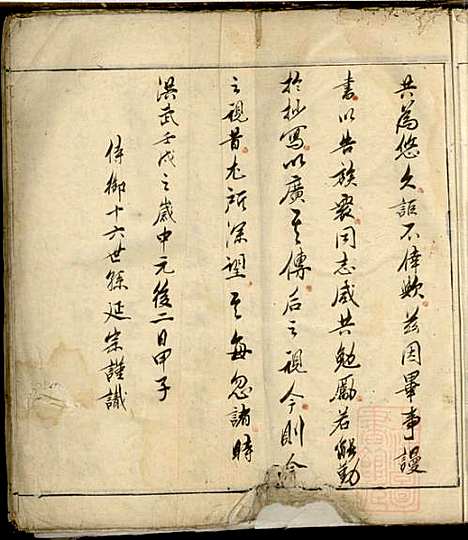 共為悠久詎不偉歟茲因畢事謾
書以告族眾同志咸共勉勵若能勤
於抄寫以廣其傳后之視今則今
之視昔尤所深望其每忽諸時
洪武壬戌之歲中元後二日甲子
侍御十六世孫延宗謹識